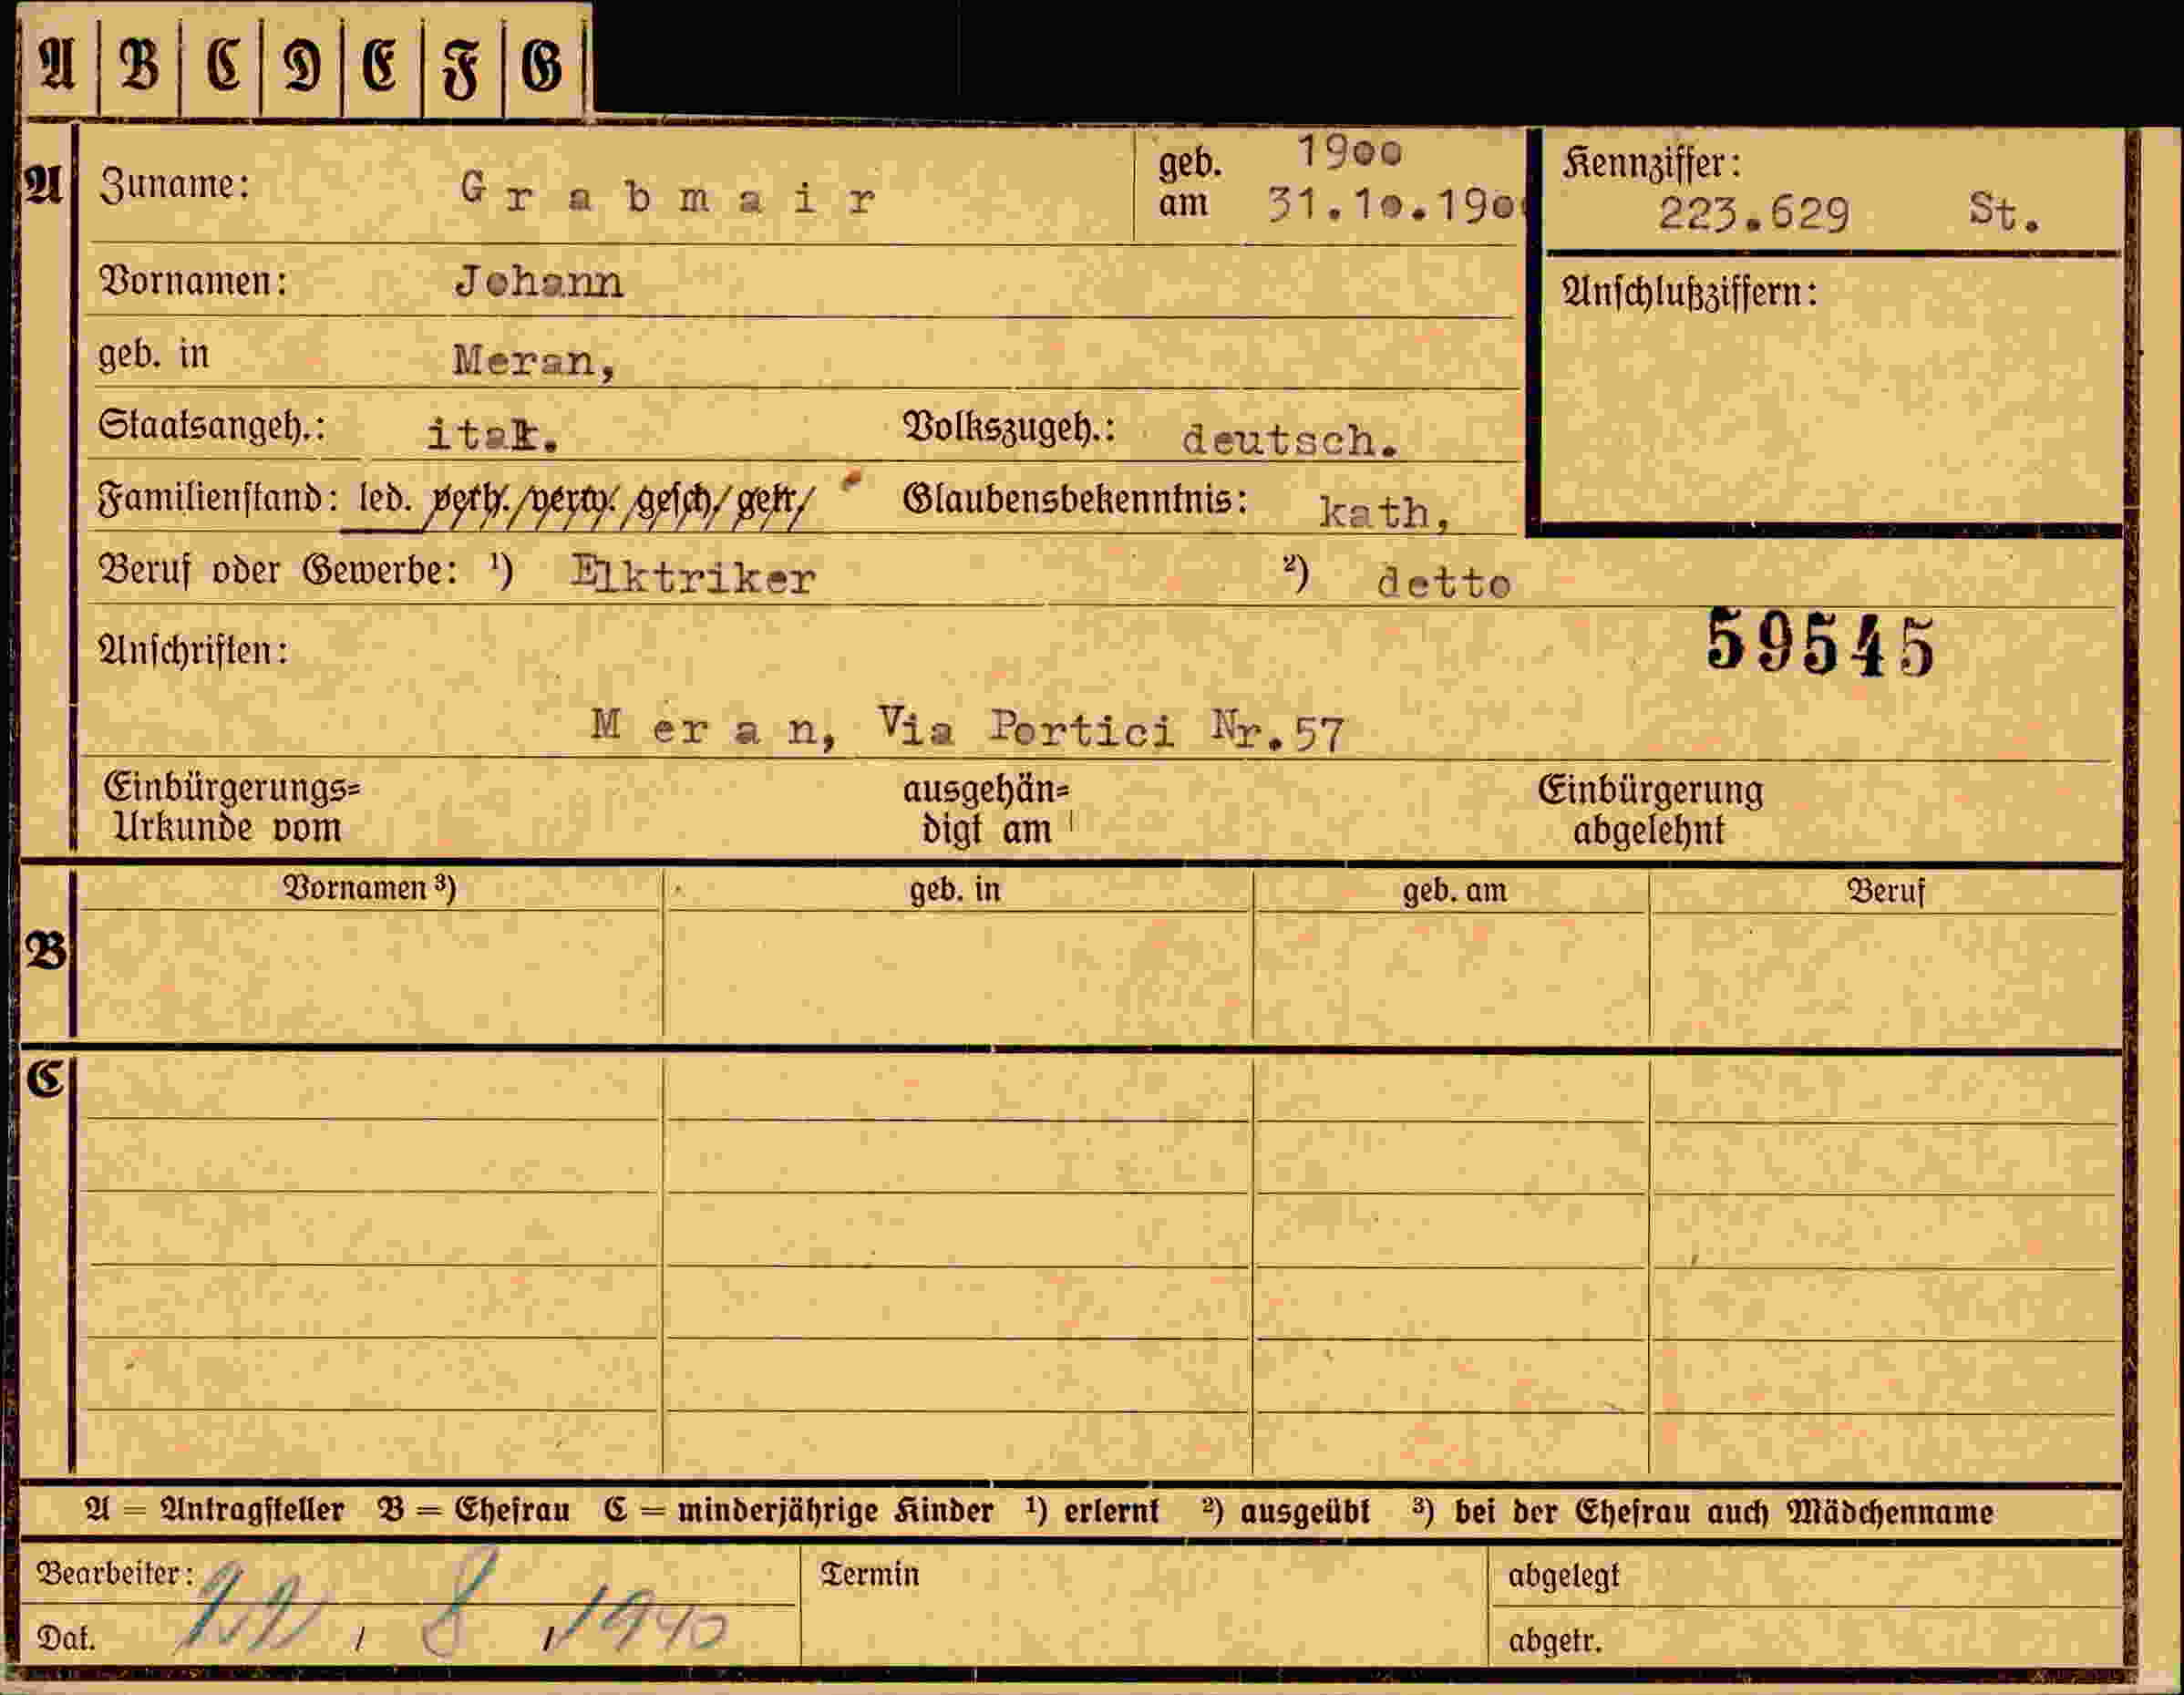 A B C D E F G
A Zuname: Grabmair geb. am 1900 31.10.190 Kennziffer: 223.629 St.
Vornamen: Johann Anschlußziffern:
geb. in Meran,
Staatsangeh.: ital. Volkszugeh.: deutsch.
Familienstand: led. verh. verw. gesch. getr. Glaubensbekenntnis: kath,
Beruf oder Gewerbe: ¹) Elktriker ²) detto
Anschriften: 59545
Meran, Via Portici Nr.57
Einbürgerungs= ausgehän= Einbürgerung
Urkunde vom digt am abgelehnt
Vornamen ³) geb. in geb. am Beruf
B
C
A = Antragsteller B = Ehefrau C = minderjährige Kinder ¹) erlernt ²) ausgeübt ³) bei der Ehefrau auch Mädchenname
Bearbeiter: Termin abgelegt
Dat. 22. 8. 1940 abgetr.